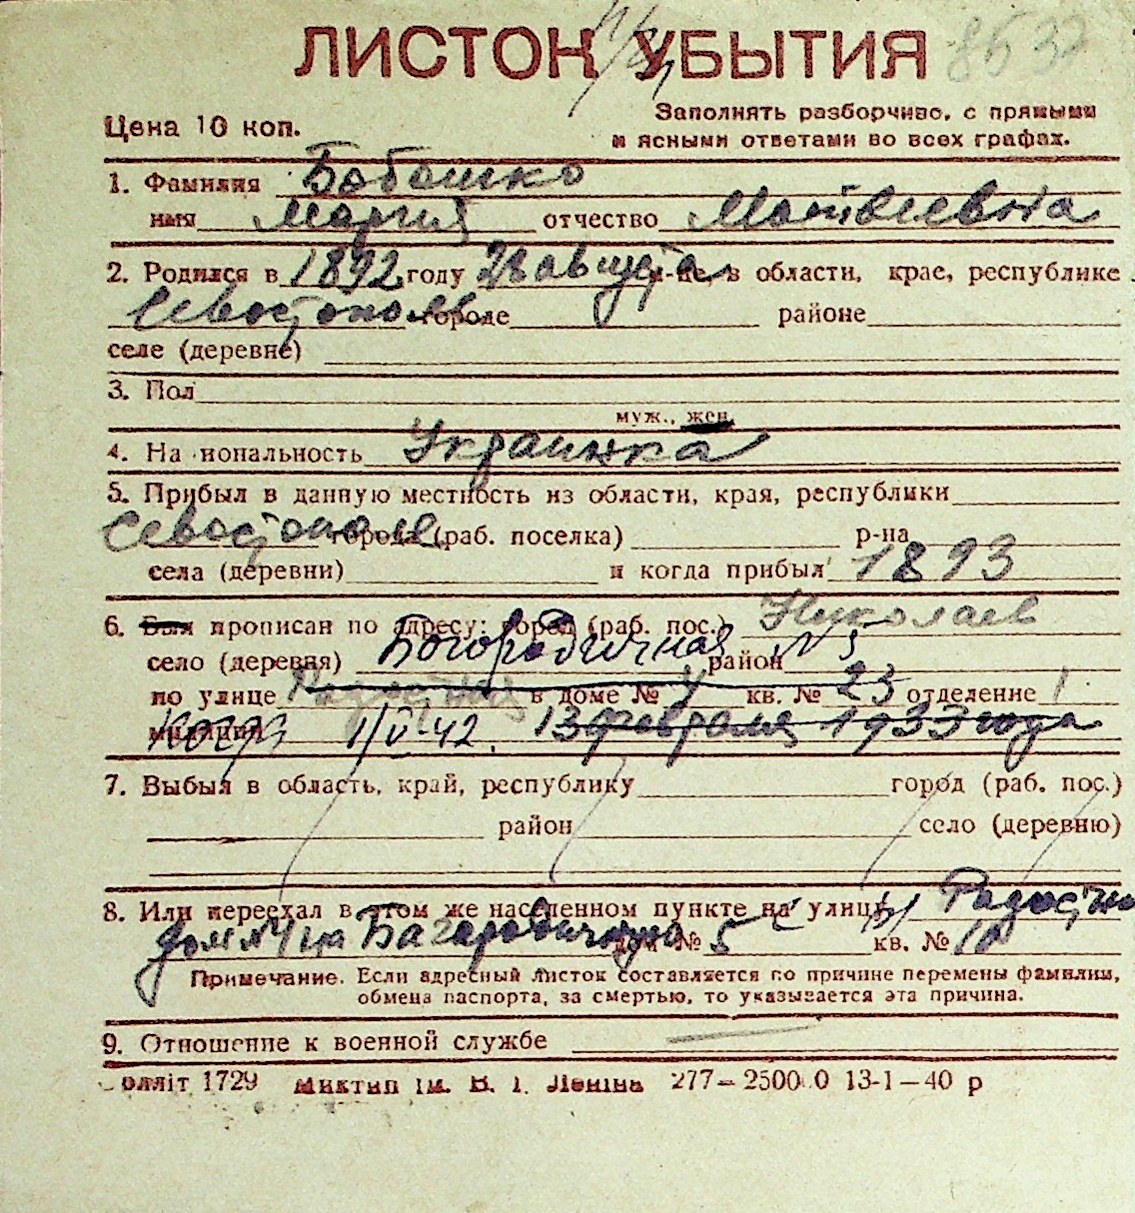 ЛИСТОК УБЫТИЯ 8532
Цена 10 коп.
Заполнять разборчиво, с прямыми
и ясными ответами во всех графах.
1. Фамилия Бобошко
имя Мария отчество Матвеевна
2. Родился в 1892 году 28 августа м-це, в области, крае, республике
Севастополь городе районе
селе (деревне)
3. Пол
муж., жен.
4. Национальность Украинка
5. Прибыл в данную местность из области, края, республики
Севастополя города (раб. поселка) р-на
села (деревни) и когда прибыл 1893
6. Был прописан по адресу: город (раб. пос.) Николаев
село (деревня) Богородичная район N 5
по улице в доме № 4 кв. № 23 отделение 1
милиции 1/V-42. 13 февраля 1933 года
7. Выбыл в область, край, республику город (раб. пос.)
район село (деревню)
8. Или переехал в этом же населенном пункте на улицу Радостно
дом N 4 на дом № 5 кв. № 10
Примечание. Если адресный листок составляется по причине перемены фамилии,
обмена паспорта, за смертью, то указывается эта причина.
9. Отношение к военной службе
олліт 1729 Миктип ім. В. І. Леніна 277—2500.0 13-1—40 р